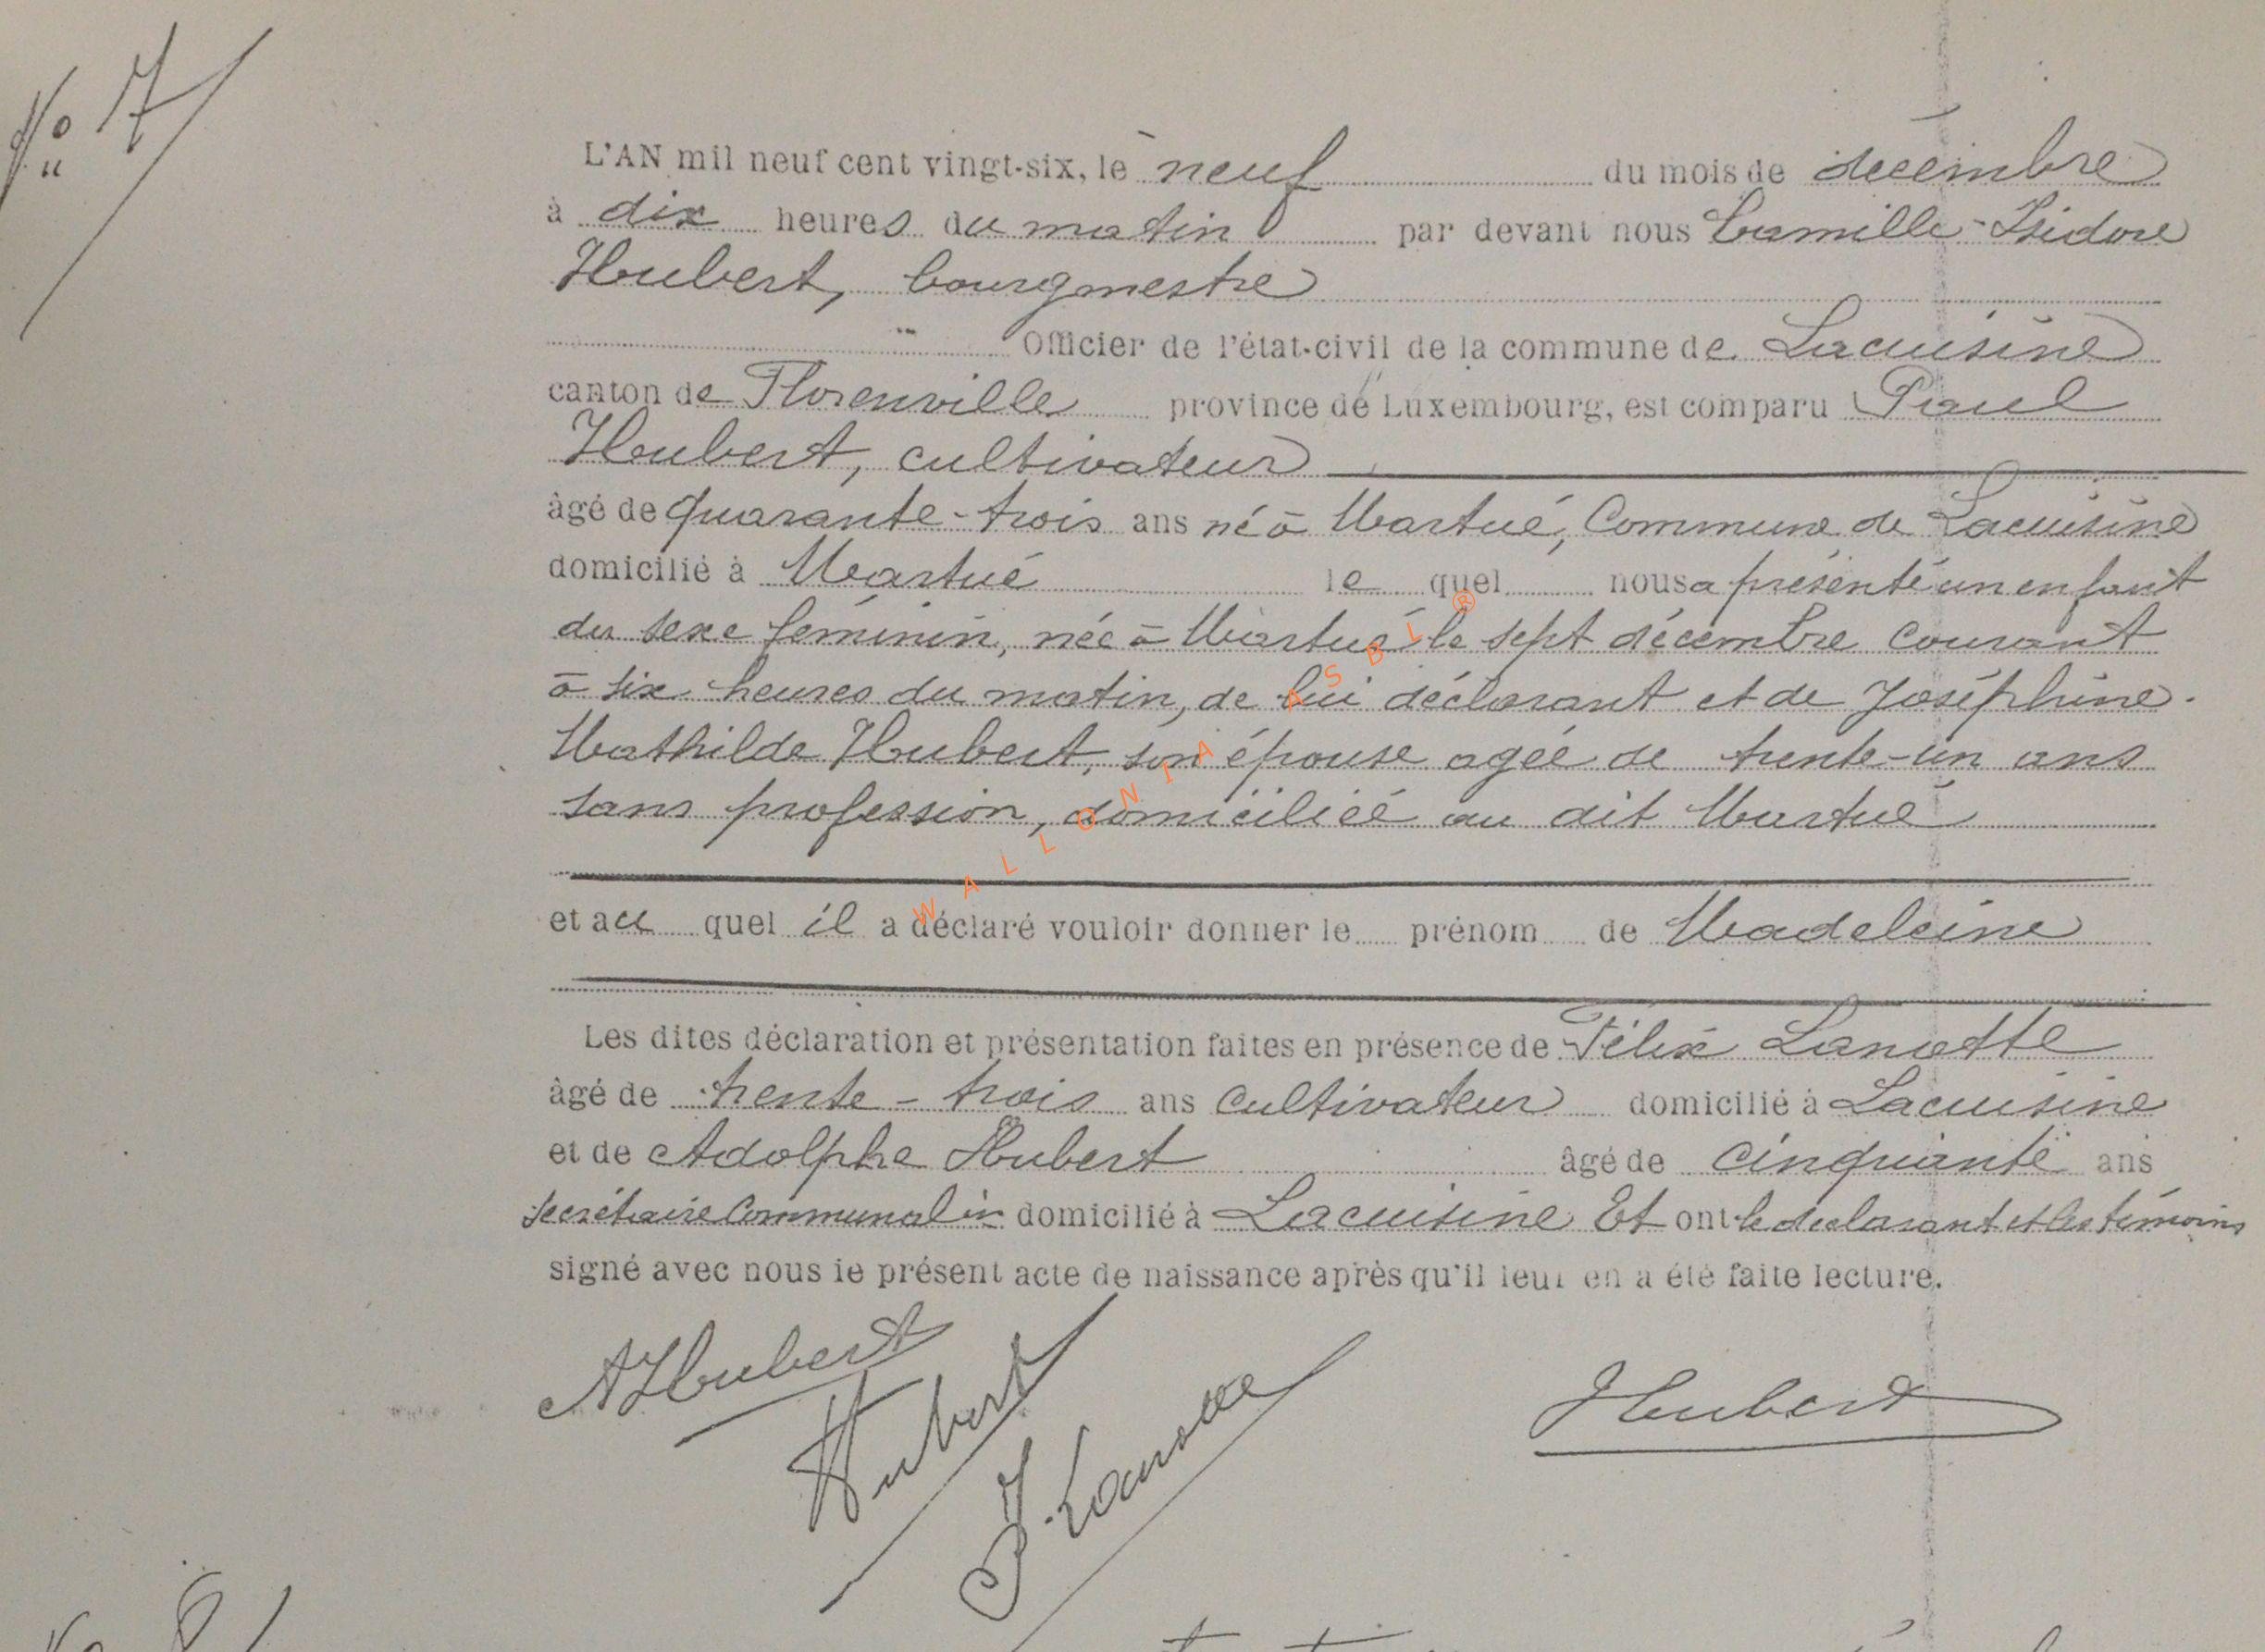 No 7
L'AN mil neuf cent vingt-six, le neuf du mois de décembre
à dix heures du matin par devant nous Camille-Isidore
Hubert, bourgmestre
Officier de l'état-civil de la commune de Lacuisine
canton de Florenville province de Luxembourg, est comparu Paul
Hubert, cultivateur
âgé de quarante-trois ans né à Martué, Commune de Lacuisine
domicilié à Martué le quel nous a présenté un enfant
du sexe féminin, née à Martué le sept décembre courant
à six heures du matin, de lui déclarant et de Joséphine-
Mathilde Hubert, son épouse agée de trente-un ans
sans profession, domiciliée au dit Martué
et au quel il a déclaré vouloir donner le prénom de Madeleine
Les dites déclaration et présentation faites en présence de Félix Lanotte
âgé de trente-trois ans cultivateur domicilié à Lacuisine
et de Adolphe Hubert âgé de cinquante ans
secrétaire communal domicilié à Lacuisine Et ont le déclarant et les témoins
signé avec nous le présent acte de naissance après qu'il leur en a été faite lecture.
AHubert
Hubert
F. Lanotte
Hubert
WALLONIA ASBL ®